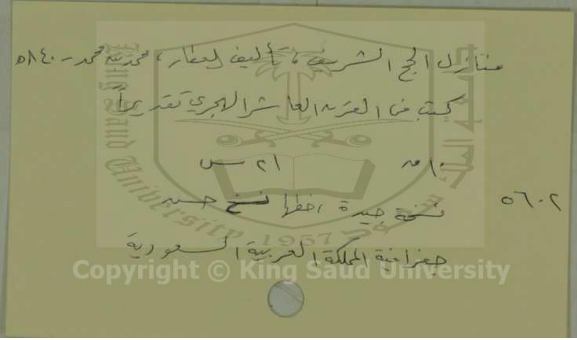 منازل الحج الشريف، تأليف العطار، محمد بن محمد - ٨٤٠ھ
كتبت في القرن العاشر الهجري تقديراً
١٠ ق ٢١ س
٥٦٠٢
نسخة جيدة، خطها نسخ حسن
جغرافية المملكة العربية السعودية
King Saud University
1957
Copyright © King Saud University